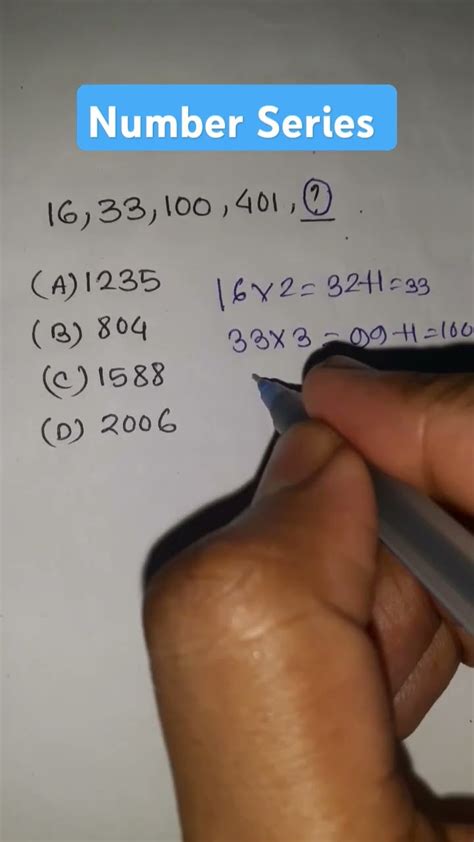 Number Series
16, 33, 100, 401, ?
(A) 1235
(B) 804
(C) 1588
(D) 2006
16×2=32+1=33
33×3=99+1=100